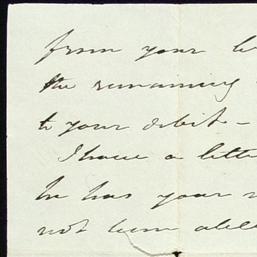 from your
the remaining
to your debit –
I have a lette
he has your
not been able